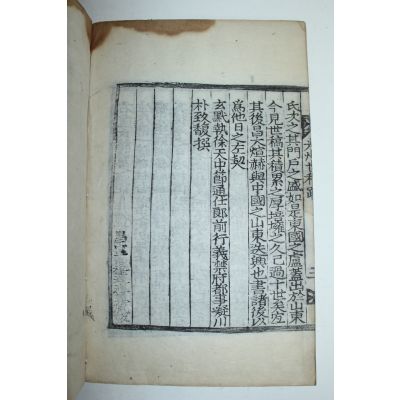 氏大之其門戶之盛如是東國之盧蓋出於山東
今見世稿其積累之厚擁之久已過十世矣宜
其後昌大煊赫與中國之山東共興也書諸後以
爲他日之左契
玄黓執徐天中節通仕郞前行義禁府都事凝川
朴致馥撰